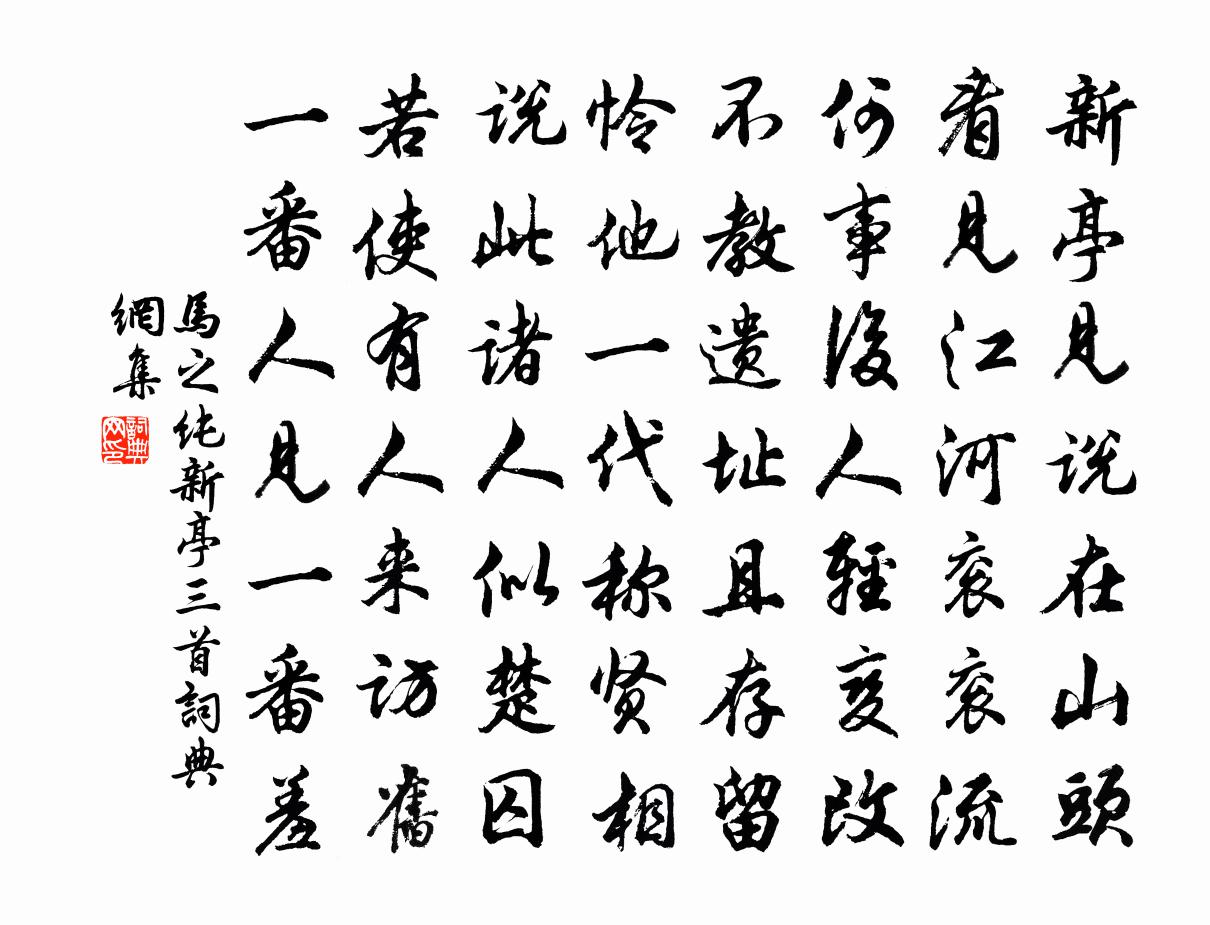 新亭見说在山頭
看見江河衮衮流
何事後人輕变改
不教遗址且存留
怜他一代称贤相
说此诸人似楚囚
若使有人来访舊
一番人見一番羞
馬之纯新亭三首詞典
網集
詞典
网印